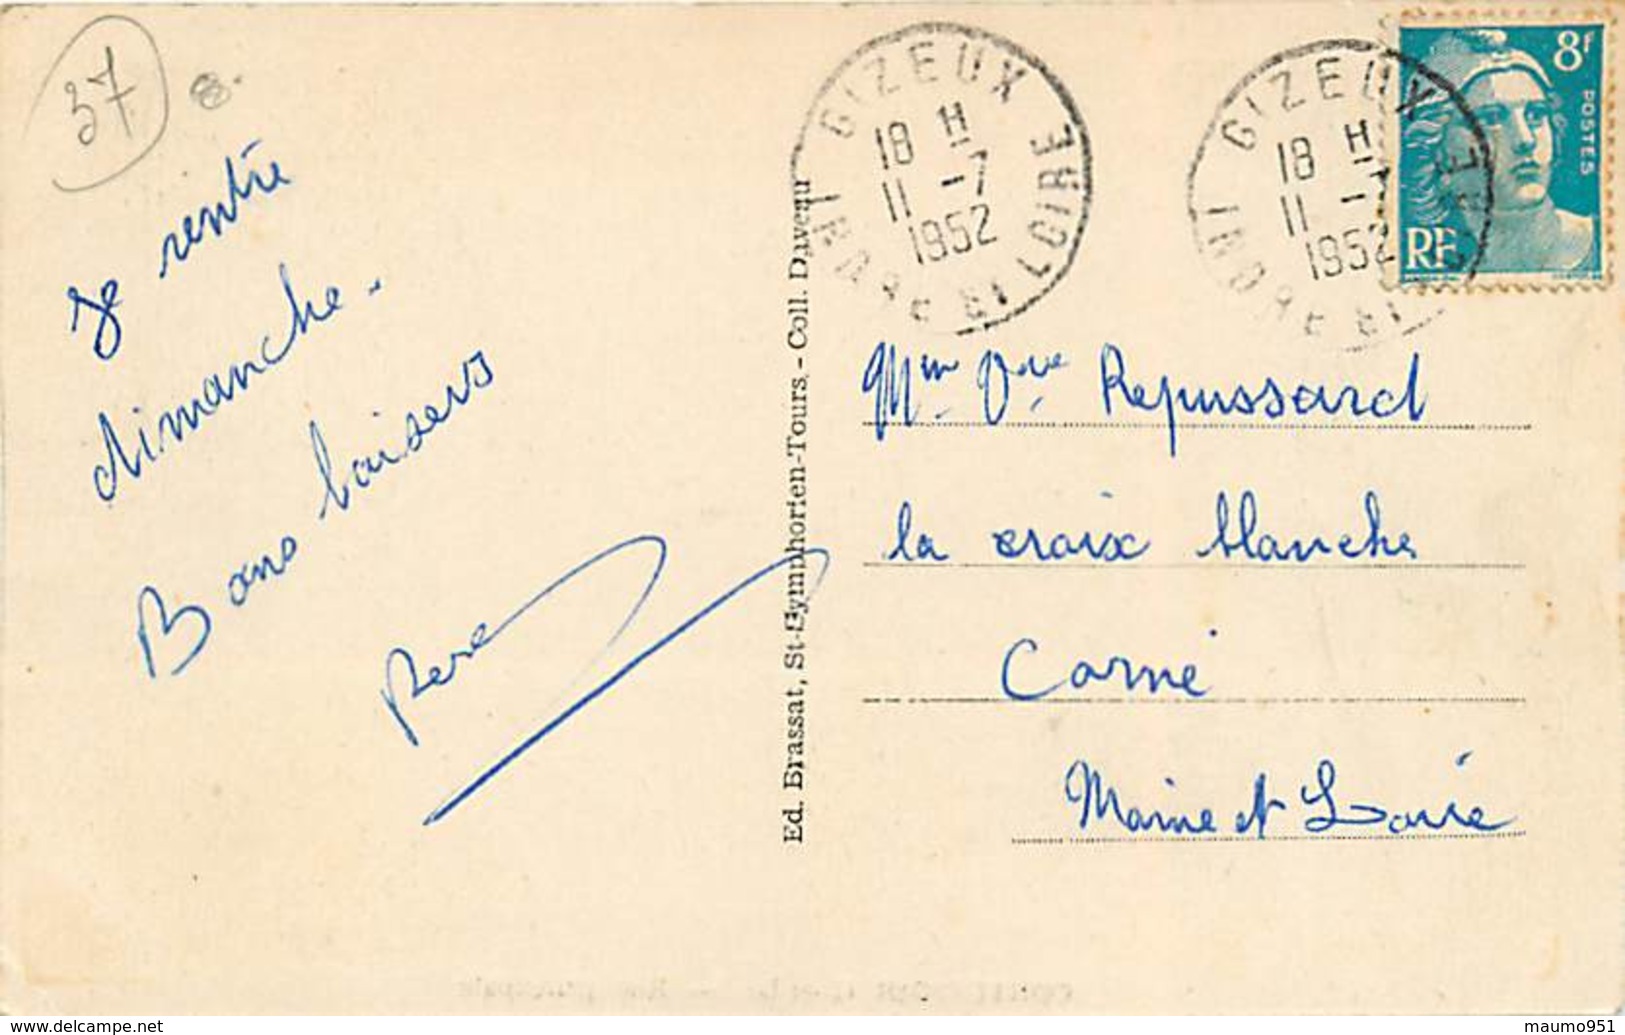 37
8.
Je rentre
dimanche.
Bons baisers
René
Ed. Brassat, St-Symphorien-Tours. - Coll. Daveau
GIZEUX
18 H
11 -7
1952
INDRE ET LOIRE
GIZEUX
18 H
11 -7
1952
INDRE ET LOIRE
8f
POSTES
RF
Mme Vve Repussard
la croix blanche
Corné
Maine et Loire
Rue principale
maumo951